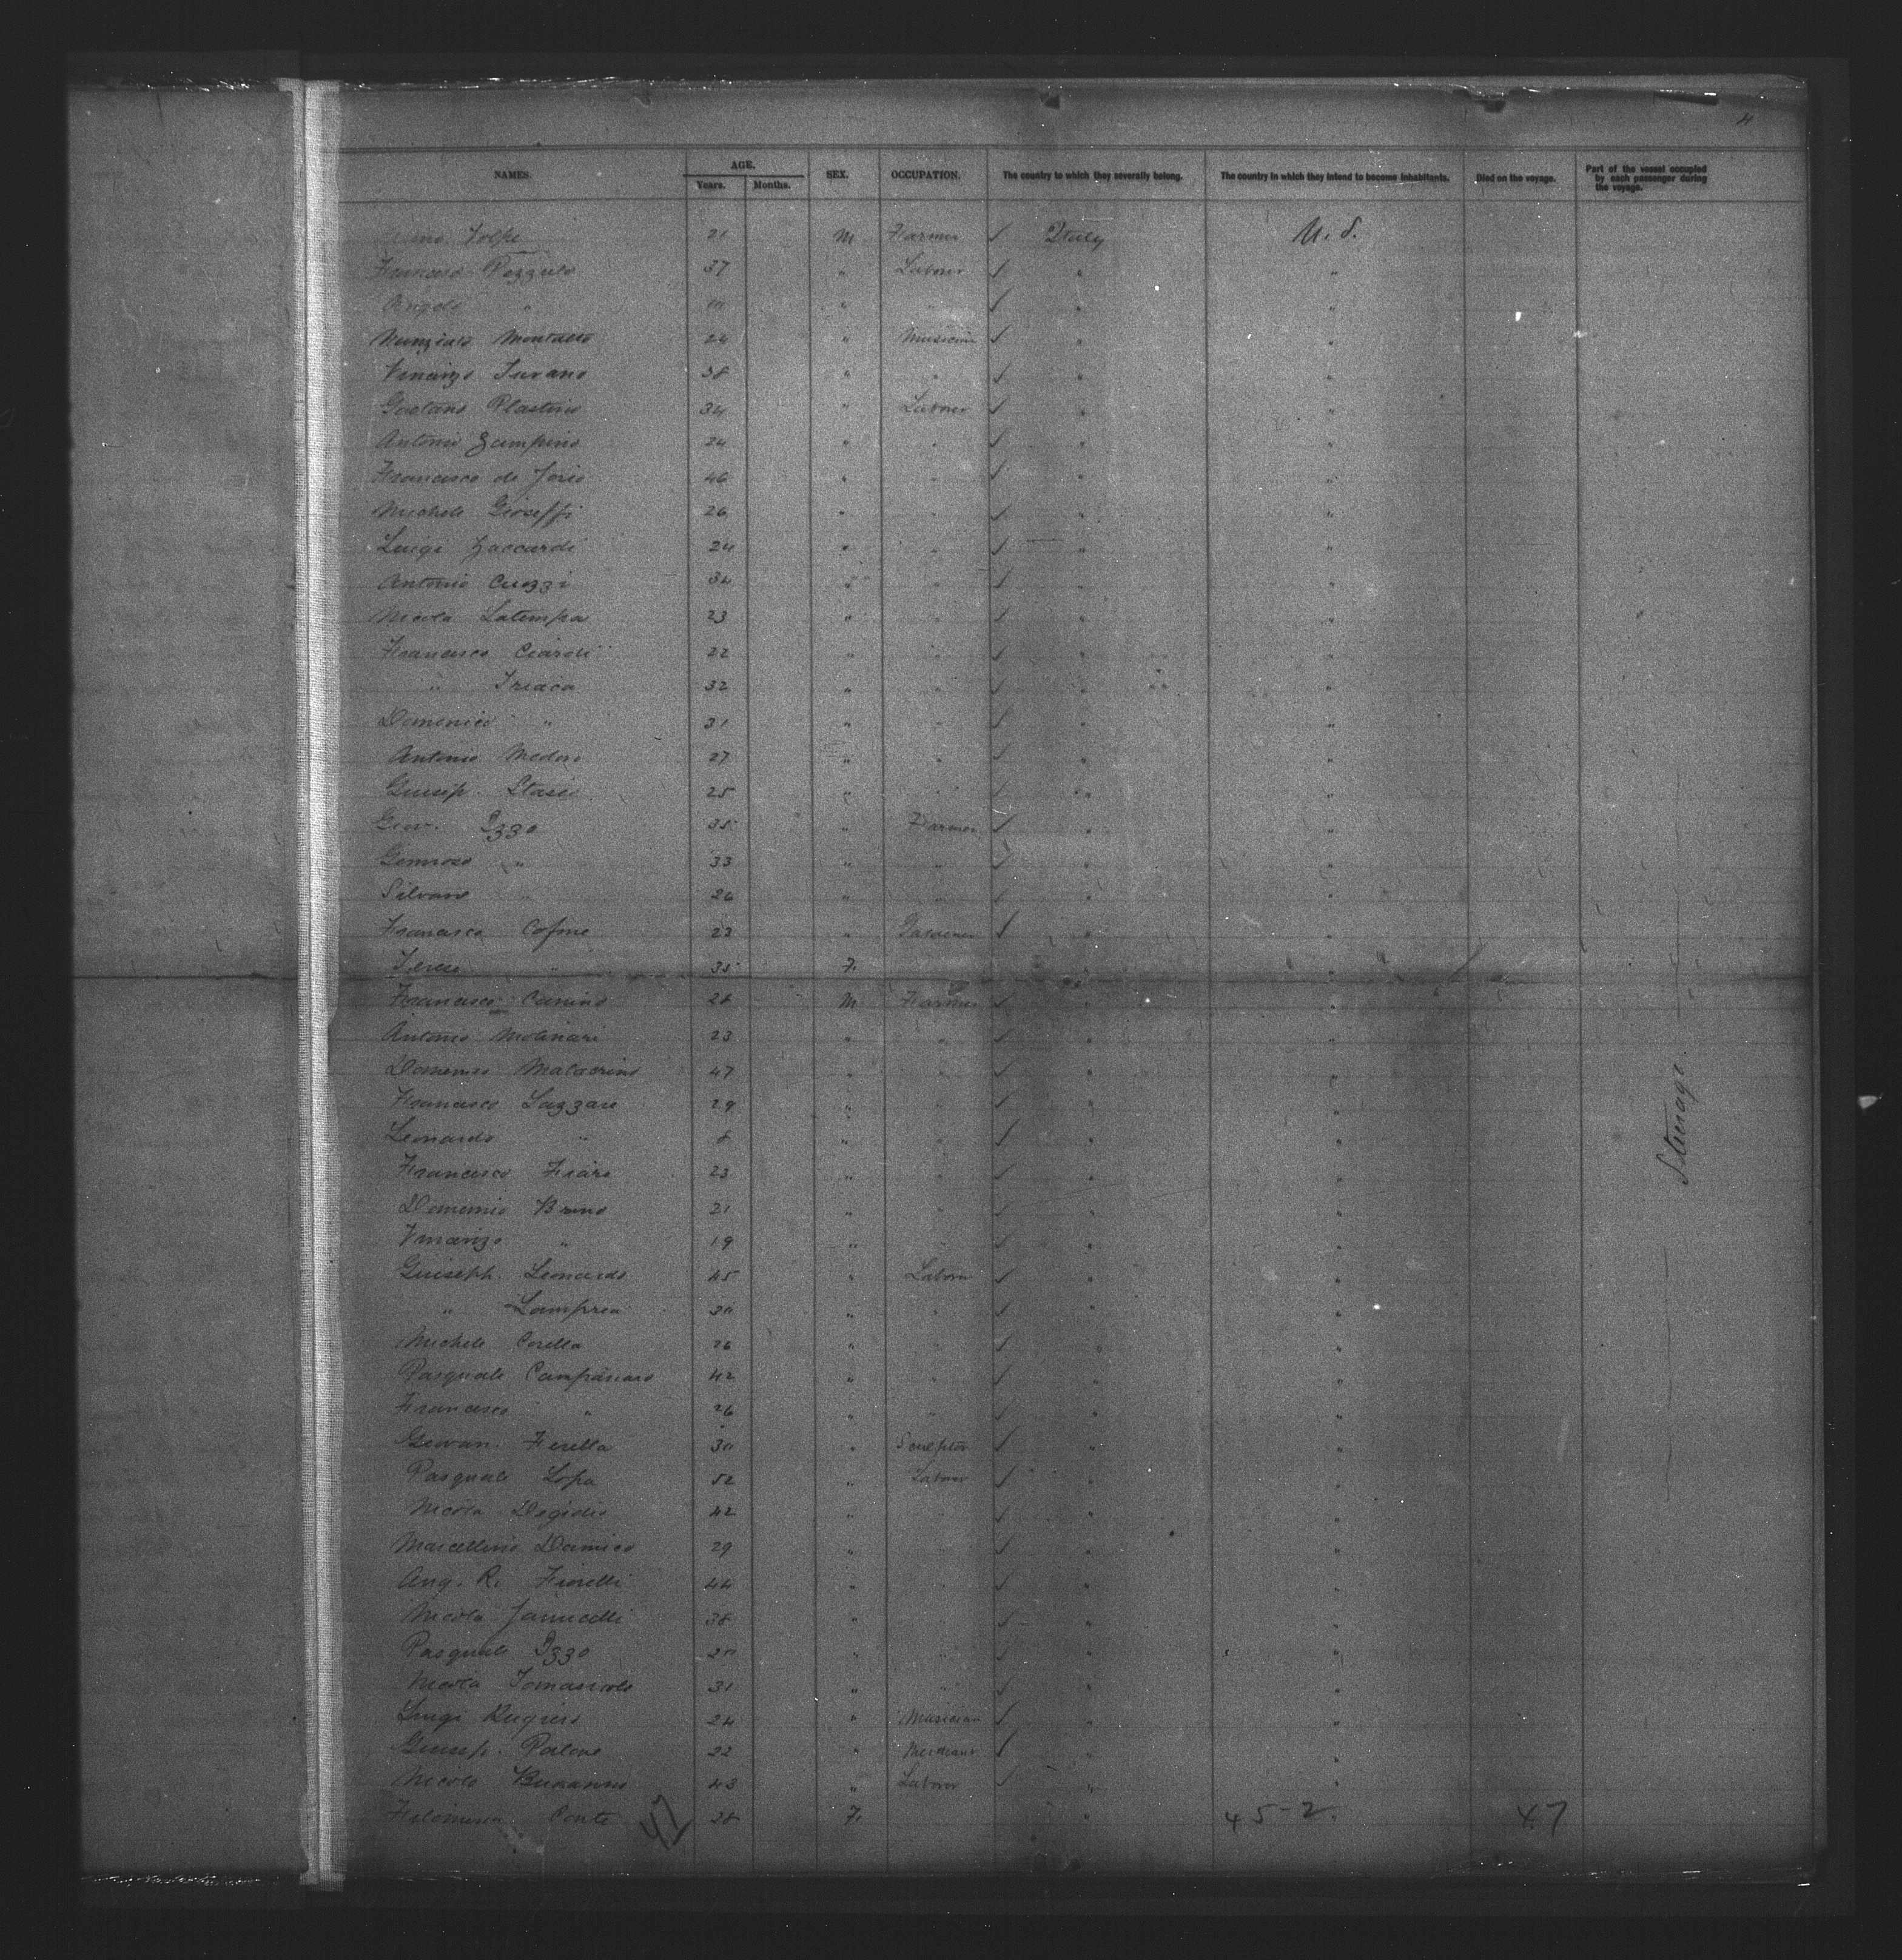 4
NAMES. AGE. Years. Months. SEX. OCCUPATION. The country to which they severally belong. The country in which they intend to become inhabitants. Died on the voyage. Part of the vessel occupied by each passenger during the voyage.
Volpe 21 M Farmer ✓ Italy U.S.
Francesco Pezzulo 37 " Laborer ✓ " "
Angelo " " " ✓ " "
Nunziato Montalto 24 " Musician ✓ " "
Vincenzo Turano 38 " " ✓ " "
Gaetano Plastino 34 " Laborer ✓ " "
Antonio Zumpino 24 " " ✓ " "
Francesco de Jorio 46 " " ✓ " "
Michele Gioseffi 26 " " ✓ " "
Luigi Zaccardi 24 " " ✓ " "
Antonio Cuzzi 34 " " ✓ " "
Nicola Latempa 23 " " ✓ " "
Francesco Ciardi 22 " " ✓ " "
" Triaca 32 " " ✓ " "
Domenico " 31 " " ✓ " "
Antonio Medoro 27 " " ✓ " "
Giusep. Stasio 25 " " ✓ " "
Giov. Izzo 35 " Farmer ✓ " "
Generoso " 33 " " ✓ " "
Silvano " 26 " " ✓ " "
Francesco Cofone 22 " Gardener ✓ " "
Teresa " 35 F. " "
Francesco Canino 28 M Farmer ✓ " "
Antonio Molinari 23 " " ✓ " "
Domenico Malacrino 47 " " ✓ " "
Francesco Lazzaro 29 " " ✓ " "
Leonardo " 8 " " ✓ " "
Francesco Fiaro 23 " " ✓ " "
Domenico Bruno 21 " " ✓ " "
Vincenzo " 19 " " ✓ " "
Guiseph. Leonardo 45 " Laborer ✓ " "
" Lamprea 30 " " ✓ " "
Michele Corella 26 " " ✓ " "
Pasquale Campanaro 42 " " ✓ " "
Francesco " 26 " " ✓ " "
Giovan. Ferella 30 " Sculptor ✓ " "
Pasquale Lopa 52 " Laborer ✓ " "
Nicola Degidio 42 " " ✓ " "
Marcellino Damico 29 " " ✓ " "
Ang. R. Fiorelli 44 " " ✓ " "
Nicola Jannicelli 38 " " ✓ " "
Pasquale Izzo " " ✓ " "
Nicola Tomasicolo 31 " " ✓ " "
Luigi Rugiero 24 " Musician ✓ " "
Giusep. Palone 22 " ✓ " "
Nicolo 43 " Laborer ✓ " "
Filomena Conte 28 F. " 45-2. 47
47
Steerage